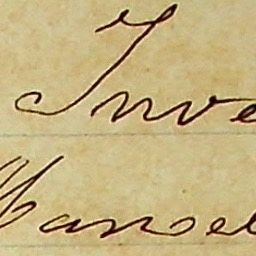 Inve
Manoel